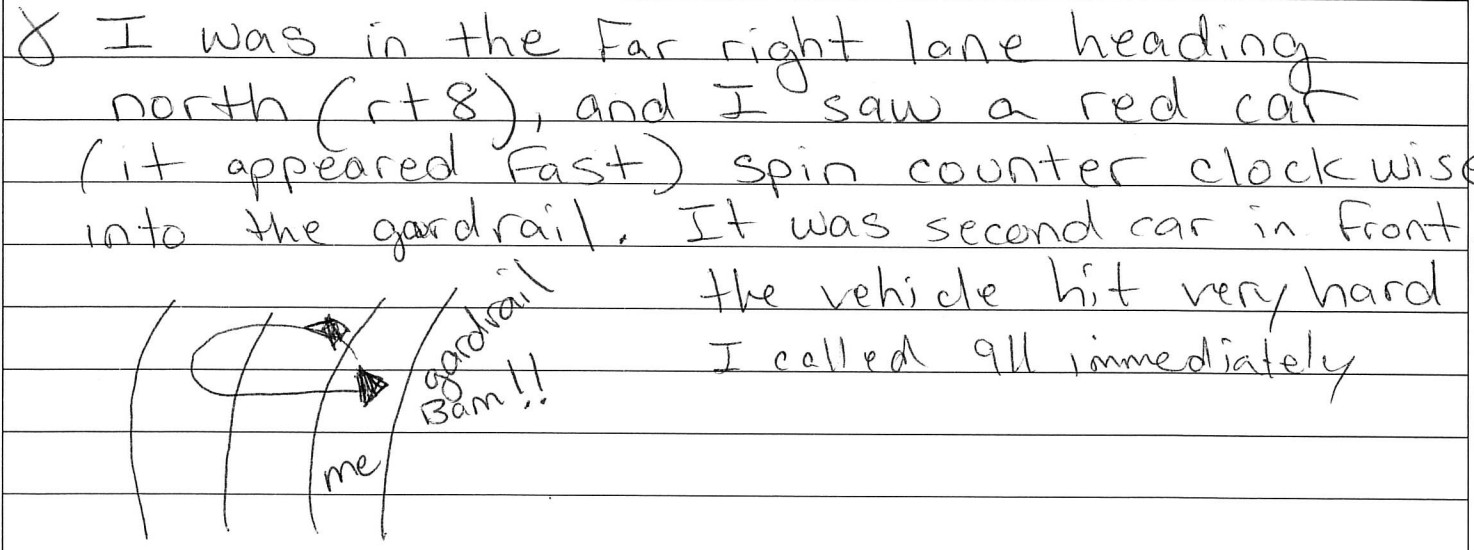 I was in the Far right lane heading
north (rt 8), and I saw a red car
(it appeared Fast) spin counter clockwise
into the gardrail. It was second car in Front
the vehicle hit very hard
I called 911 immediately
gardrail
Bam!!
me